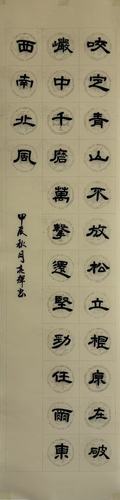 咬定青山不放松立根原在破
巖中千磨萬擊還堅勁任爾東
西南北風
甲辰秋月